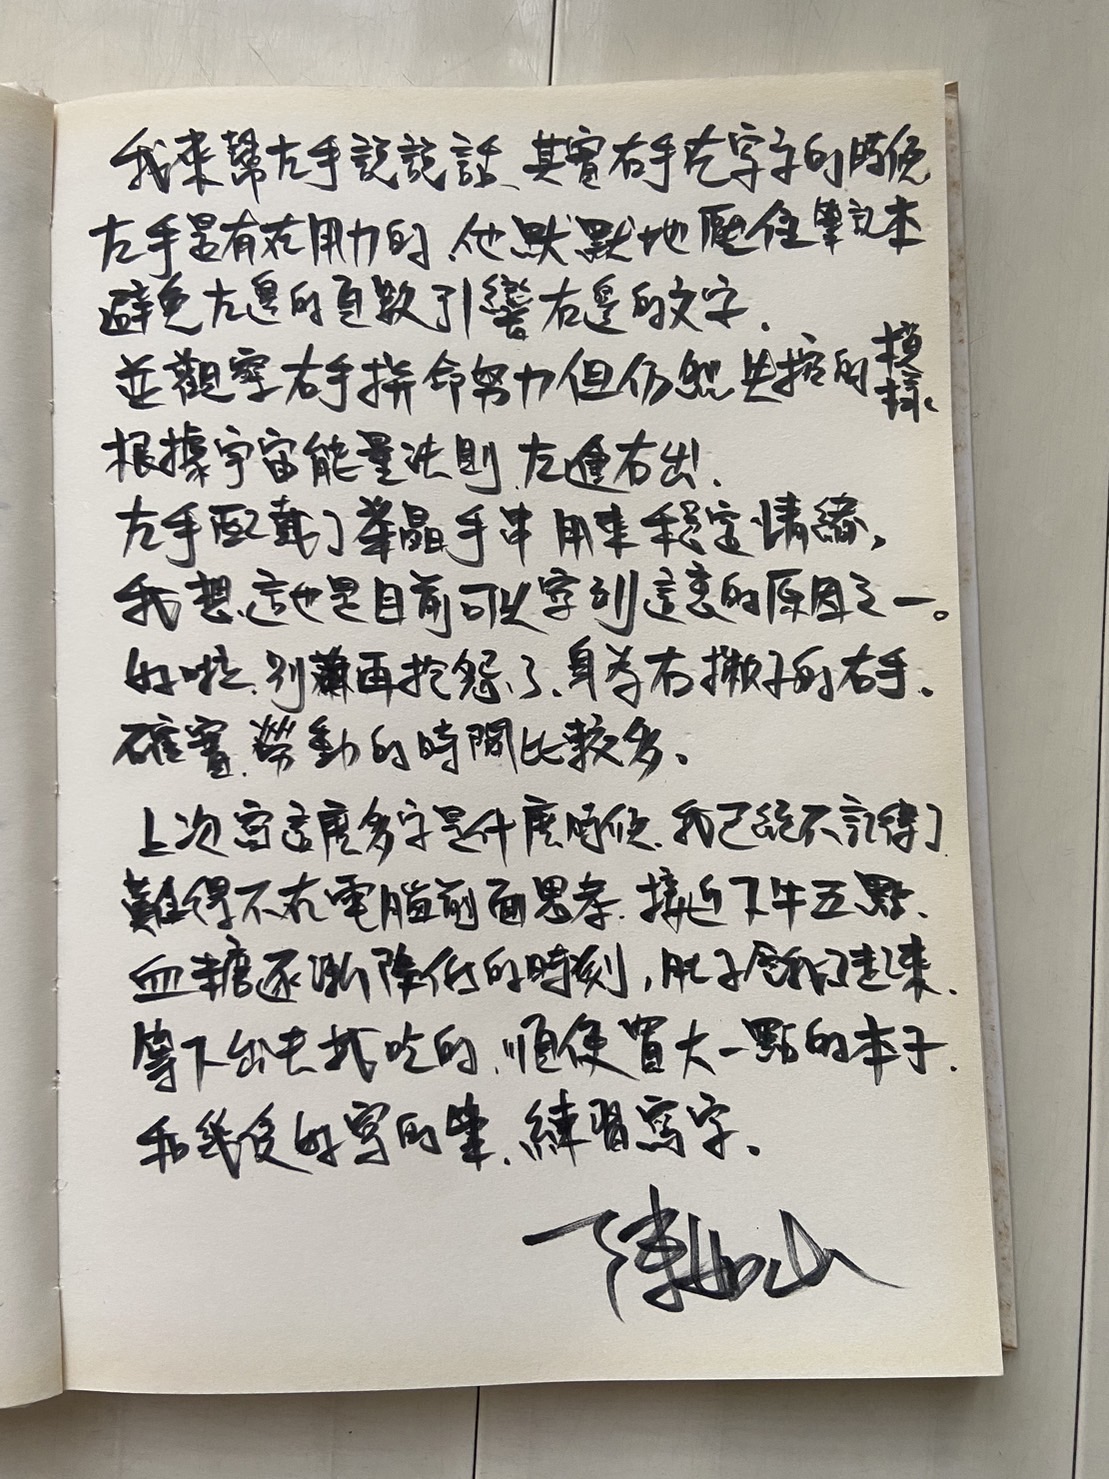 我來幫左手說說話、其實右手在寫字的時候
左手是有在用力的、他默默地壓住筆記本
避免左邊的頁數引響右邊的文字、
並觀察右手拼命努力但仍然失控的模樣、
根據宇宙能量法則、左進右出、
左手配戴了紫晶手串用來穩定情緒,
我想、這也是目前可以寫到這裏的原因之一。
好啦、別再抱怨了、身為右撇子的右手、
確實、勞動的時間比較多。
上次寫這麼多字是什麼時候、我已經不記得了
難得不在電腦前面思考、接近下午五點、
血糖逐漸降低的時刻,肚子餓了起來、
等下出去找吃的、順便買大一點的本子、
和幾隻好寫的筆、練習寫字。
陳如山